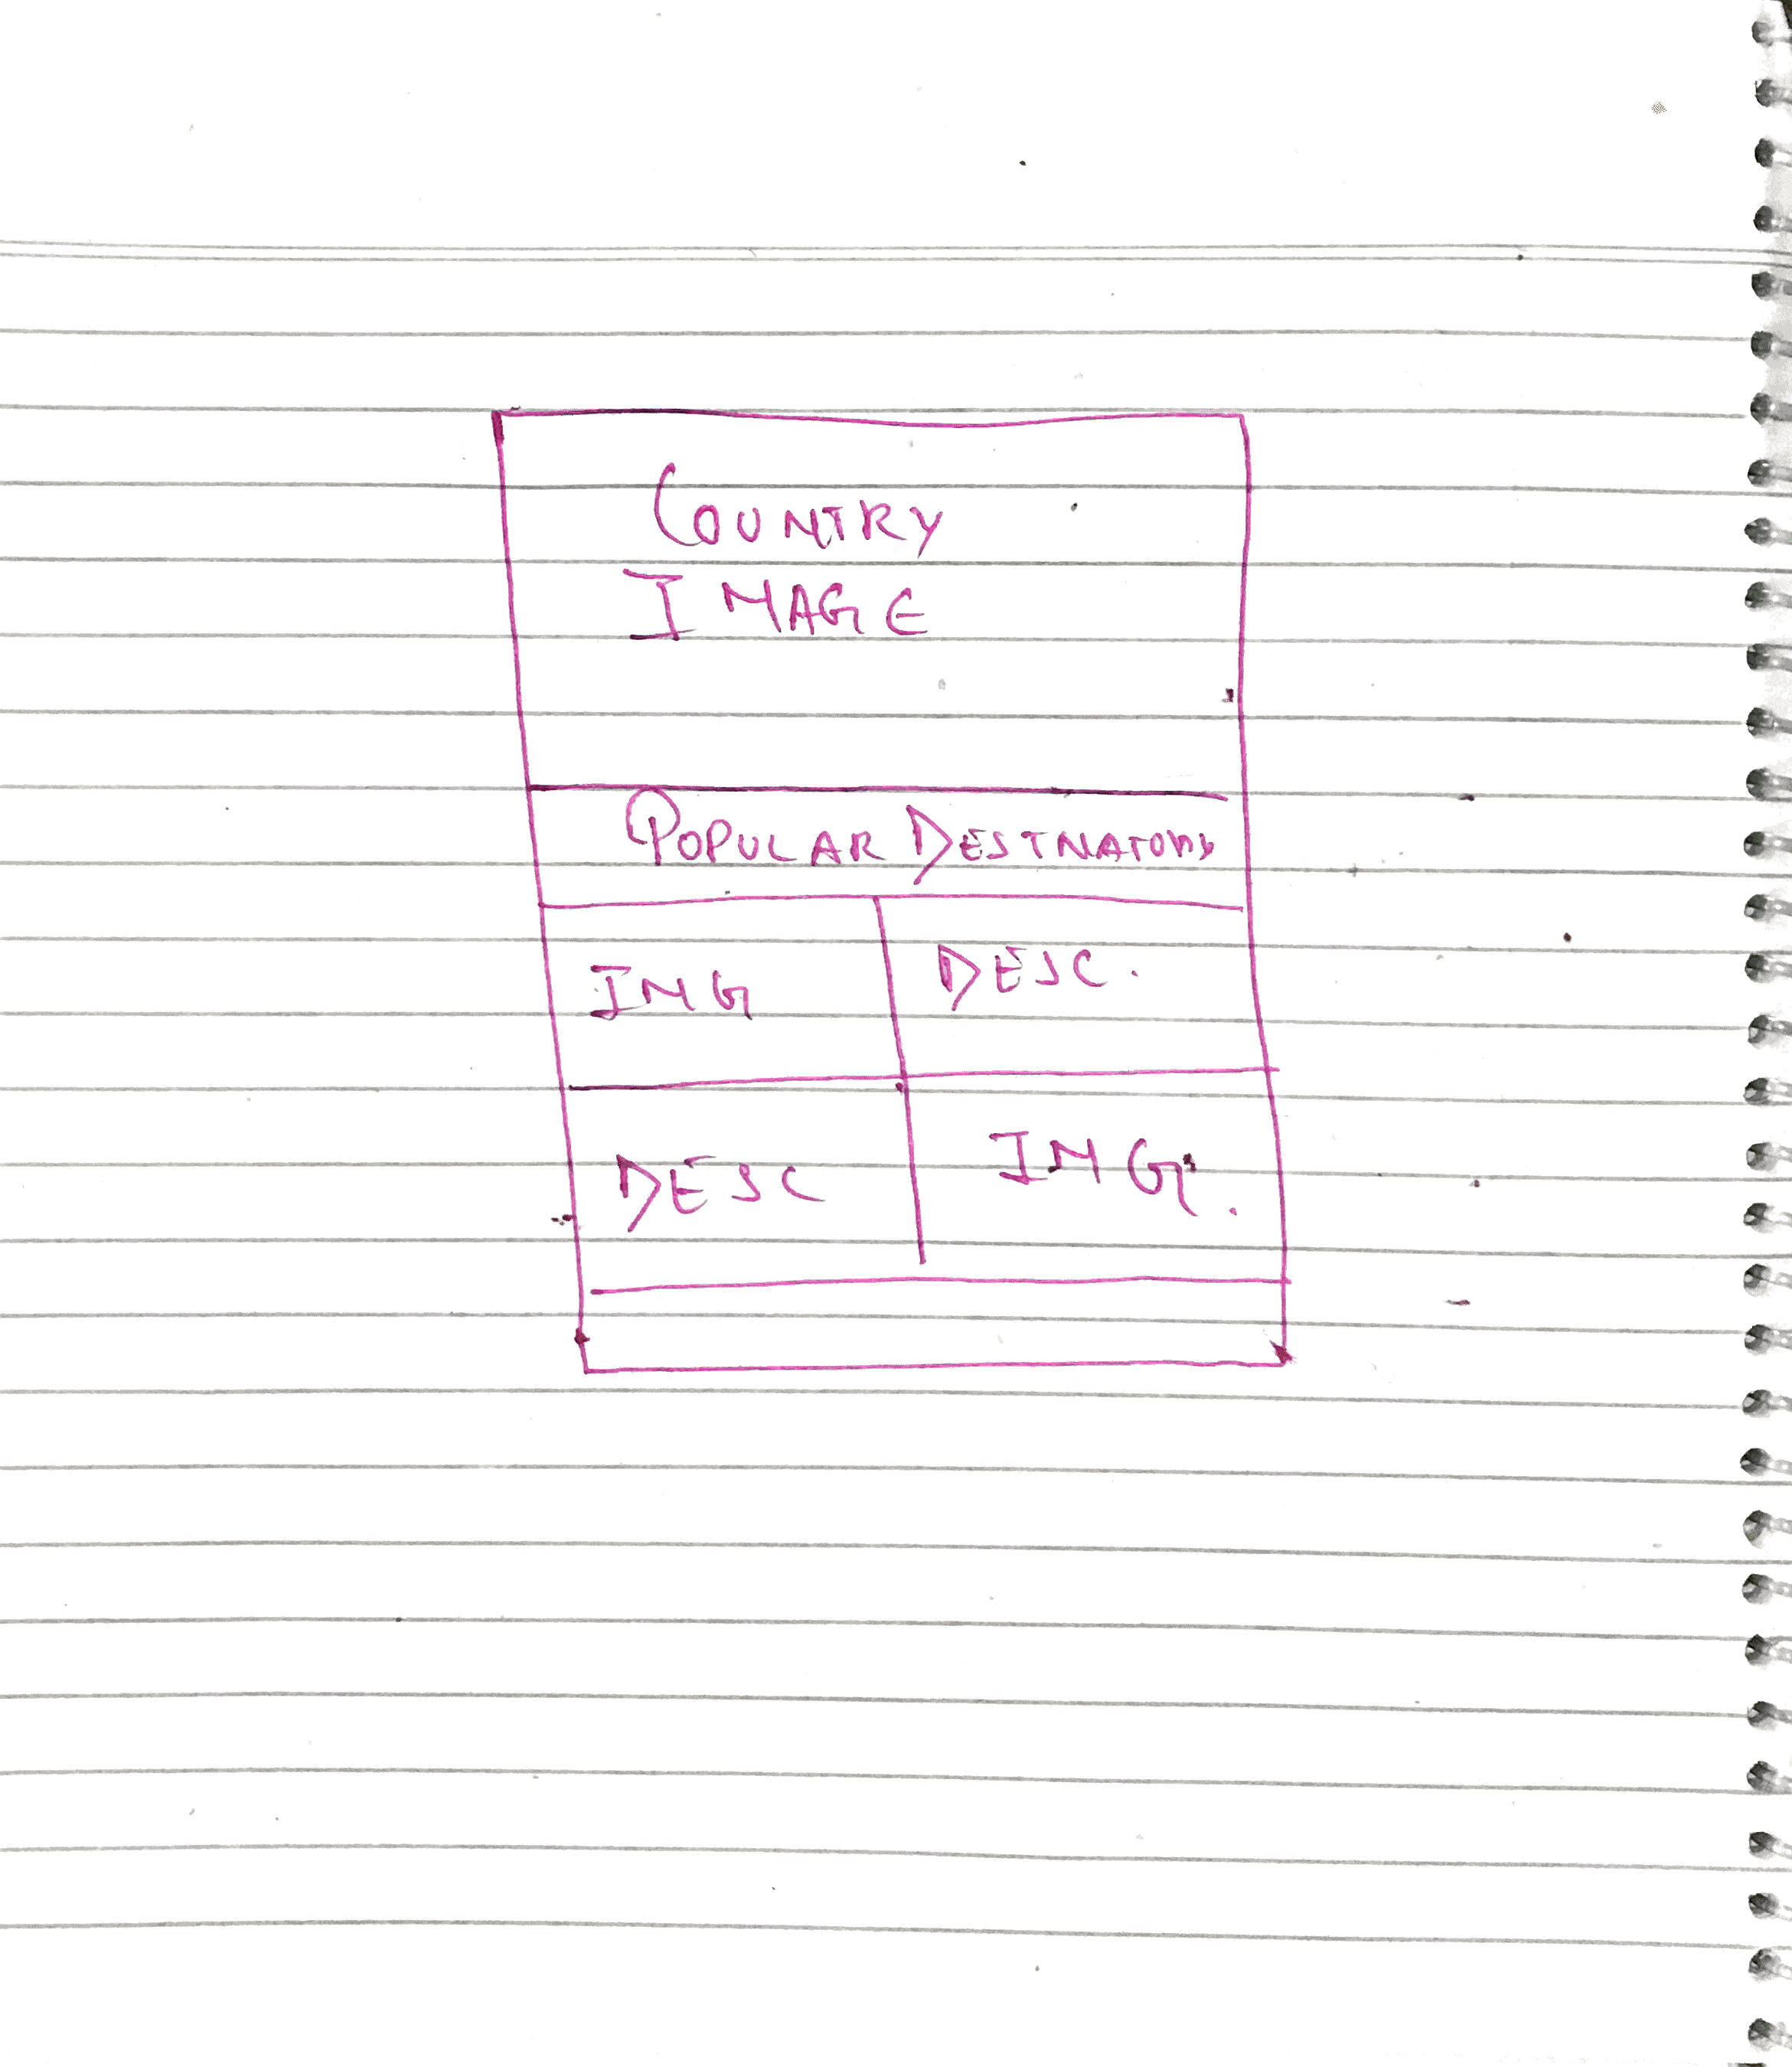 COUNTRY
IMAGE
POPULAR DESTNATONS
IMG
DESC.
DESC
IMG.